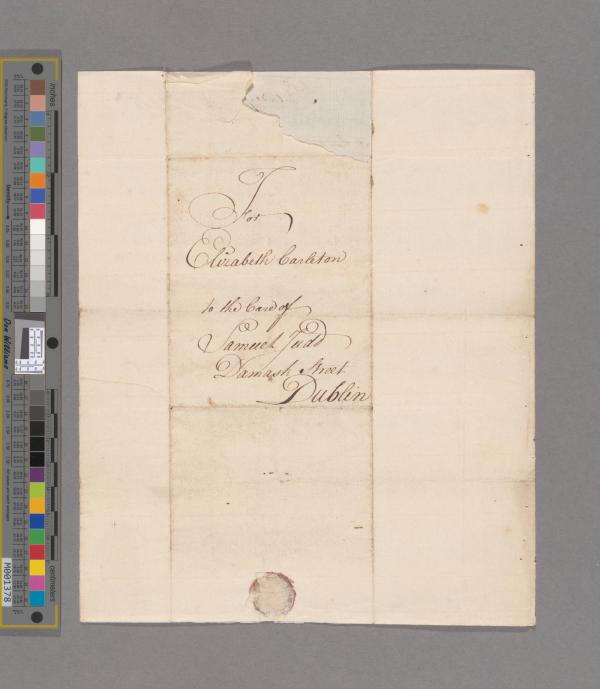 For
Elizabeth Carleton
to the Care of
Samuel Judd
Damask Street
Dublin
inches
centimetres
Don Williams
M001378